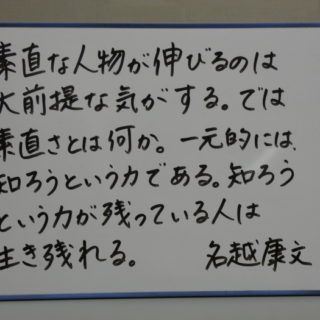 素直な人物が伸びるのは
大前提な気がする。では
素直さとは何か。一元的には、
知ろうという力である。知ろう
という力が残っている人は
生き残れる。 名越康文